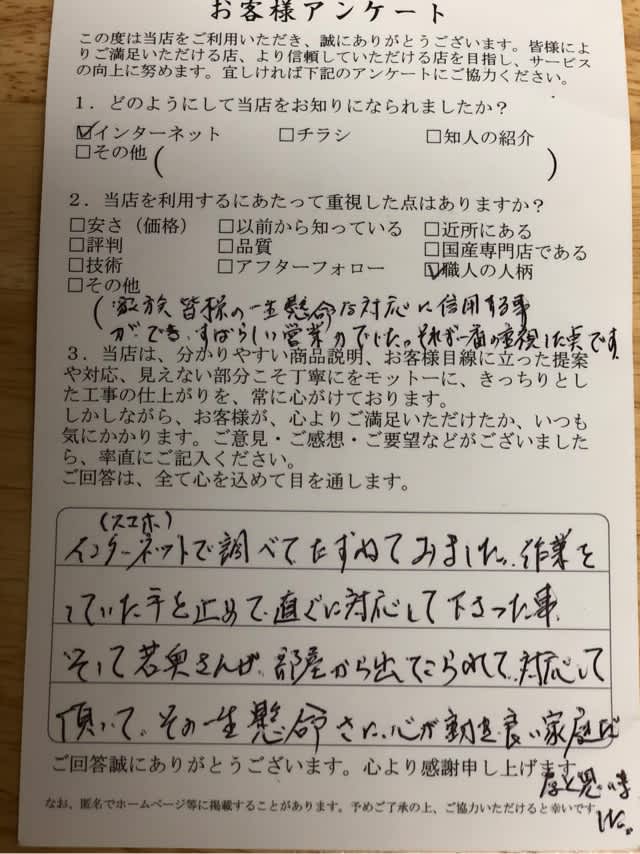 お客様アンケート
この度は当店をご利用いただき、誠にありがとうございます。皆様によ
りご満足いただける店、より信頼していただける店を目指し、サービス
の向上に努めます。宜しければ下記のアンケートにご協力ください。
1．どのようにして当店をお知りになられましたか？
☑インターネット □チラシ □知人の紹介
□その他（ ）
2．当店を利用するにあたって重視した点はありますか？
□安さ（価格） □以前から知っている □近所にある
□評判 □品質 □国産専門店である
□技術 □アフターフォロー ☑職人の人柄
□その他
（家族皆様の一生懸命な対応に信用する事
ができ、すばらしい営業力でした。それが一番の重視した点です
3．当店は、分かりやすい商品説明、お客様目線に立った提案
や対応、見えない部分こそ丁寧にをモットーに、きっちりとし
た工事の仕上がりを、常に心がけております。
しかしながら、お客様が、心よりご満足いただけたか、いつも
気にかかります。ご意見・ご感想・ご要望などがございました
ら、率直にご記入ください。
ご回答は、全て心を込めて目を通します。
（スマホ）
インターネットで調べてたずねてみました。作業を
していた手を止めて直ぐに対応して下さった事
そして若奥さんが部屋から出てこられて対応して
頂いて、その一生懸命さに、心が動き良い家庭だ
なと思いま
した。
ご回答誠にありがとうございます。心より感謝申し上げます
なお、匿名でホームページ等に掲載することがあります。予めご了承の上、ご協力いただけると幸いです。